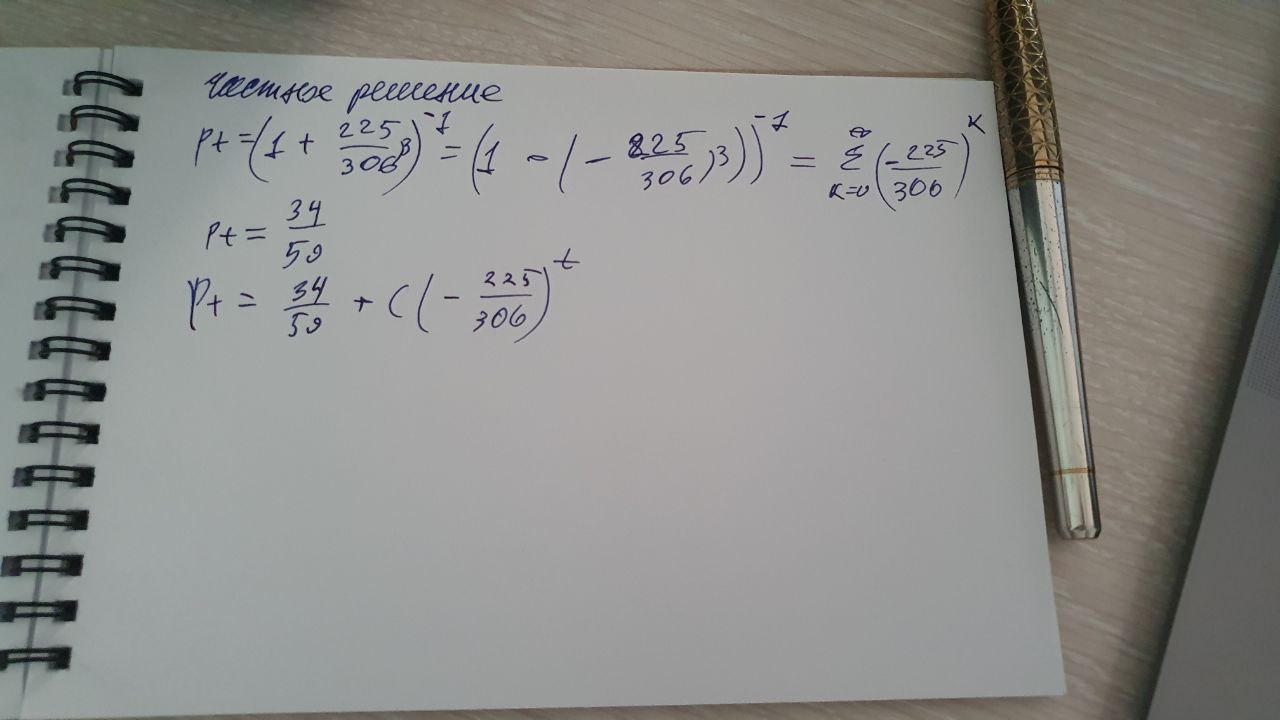 частное решение
Pt = (1 + 225/306 B)^-1 = (1 - (- 225/306 B))^-1 = ∞ Σ k=0 (-225/306)^k
Pt = 34/59
Pt = 34/59 + C(- 225/306)^t